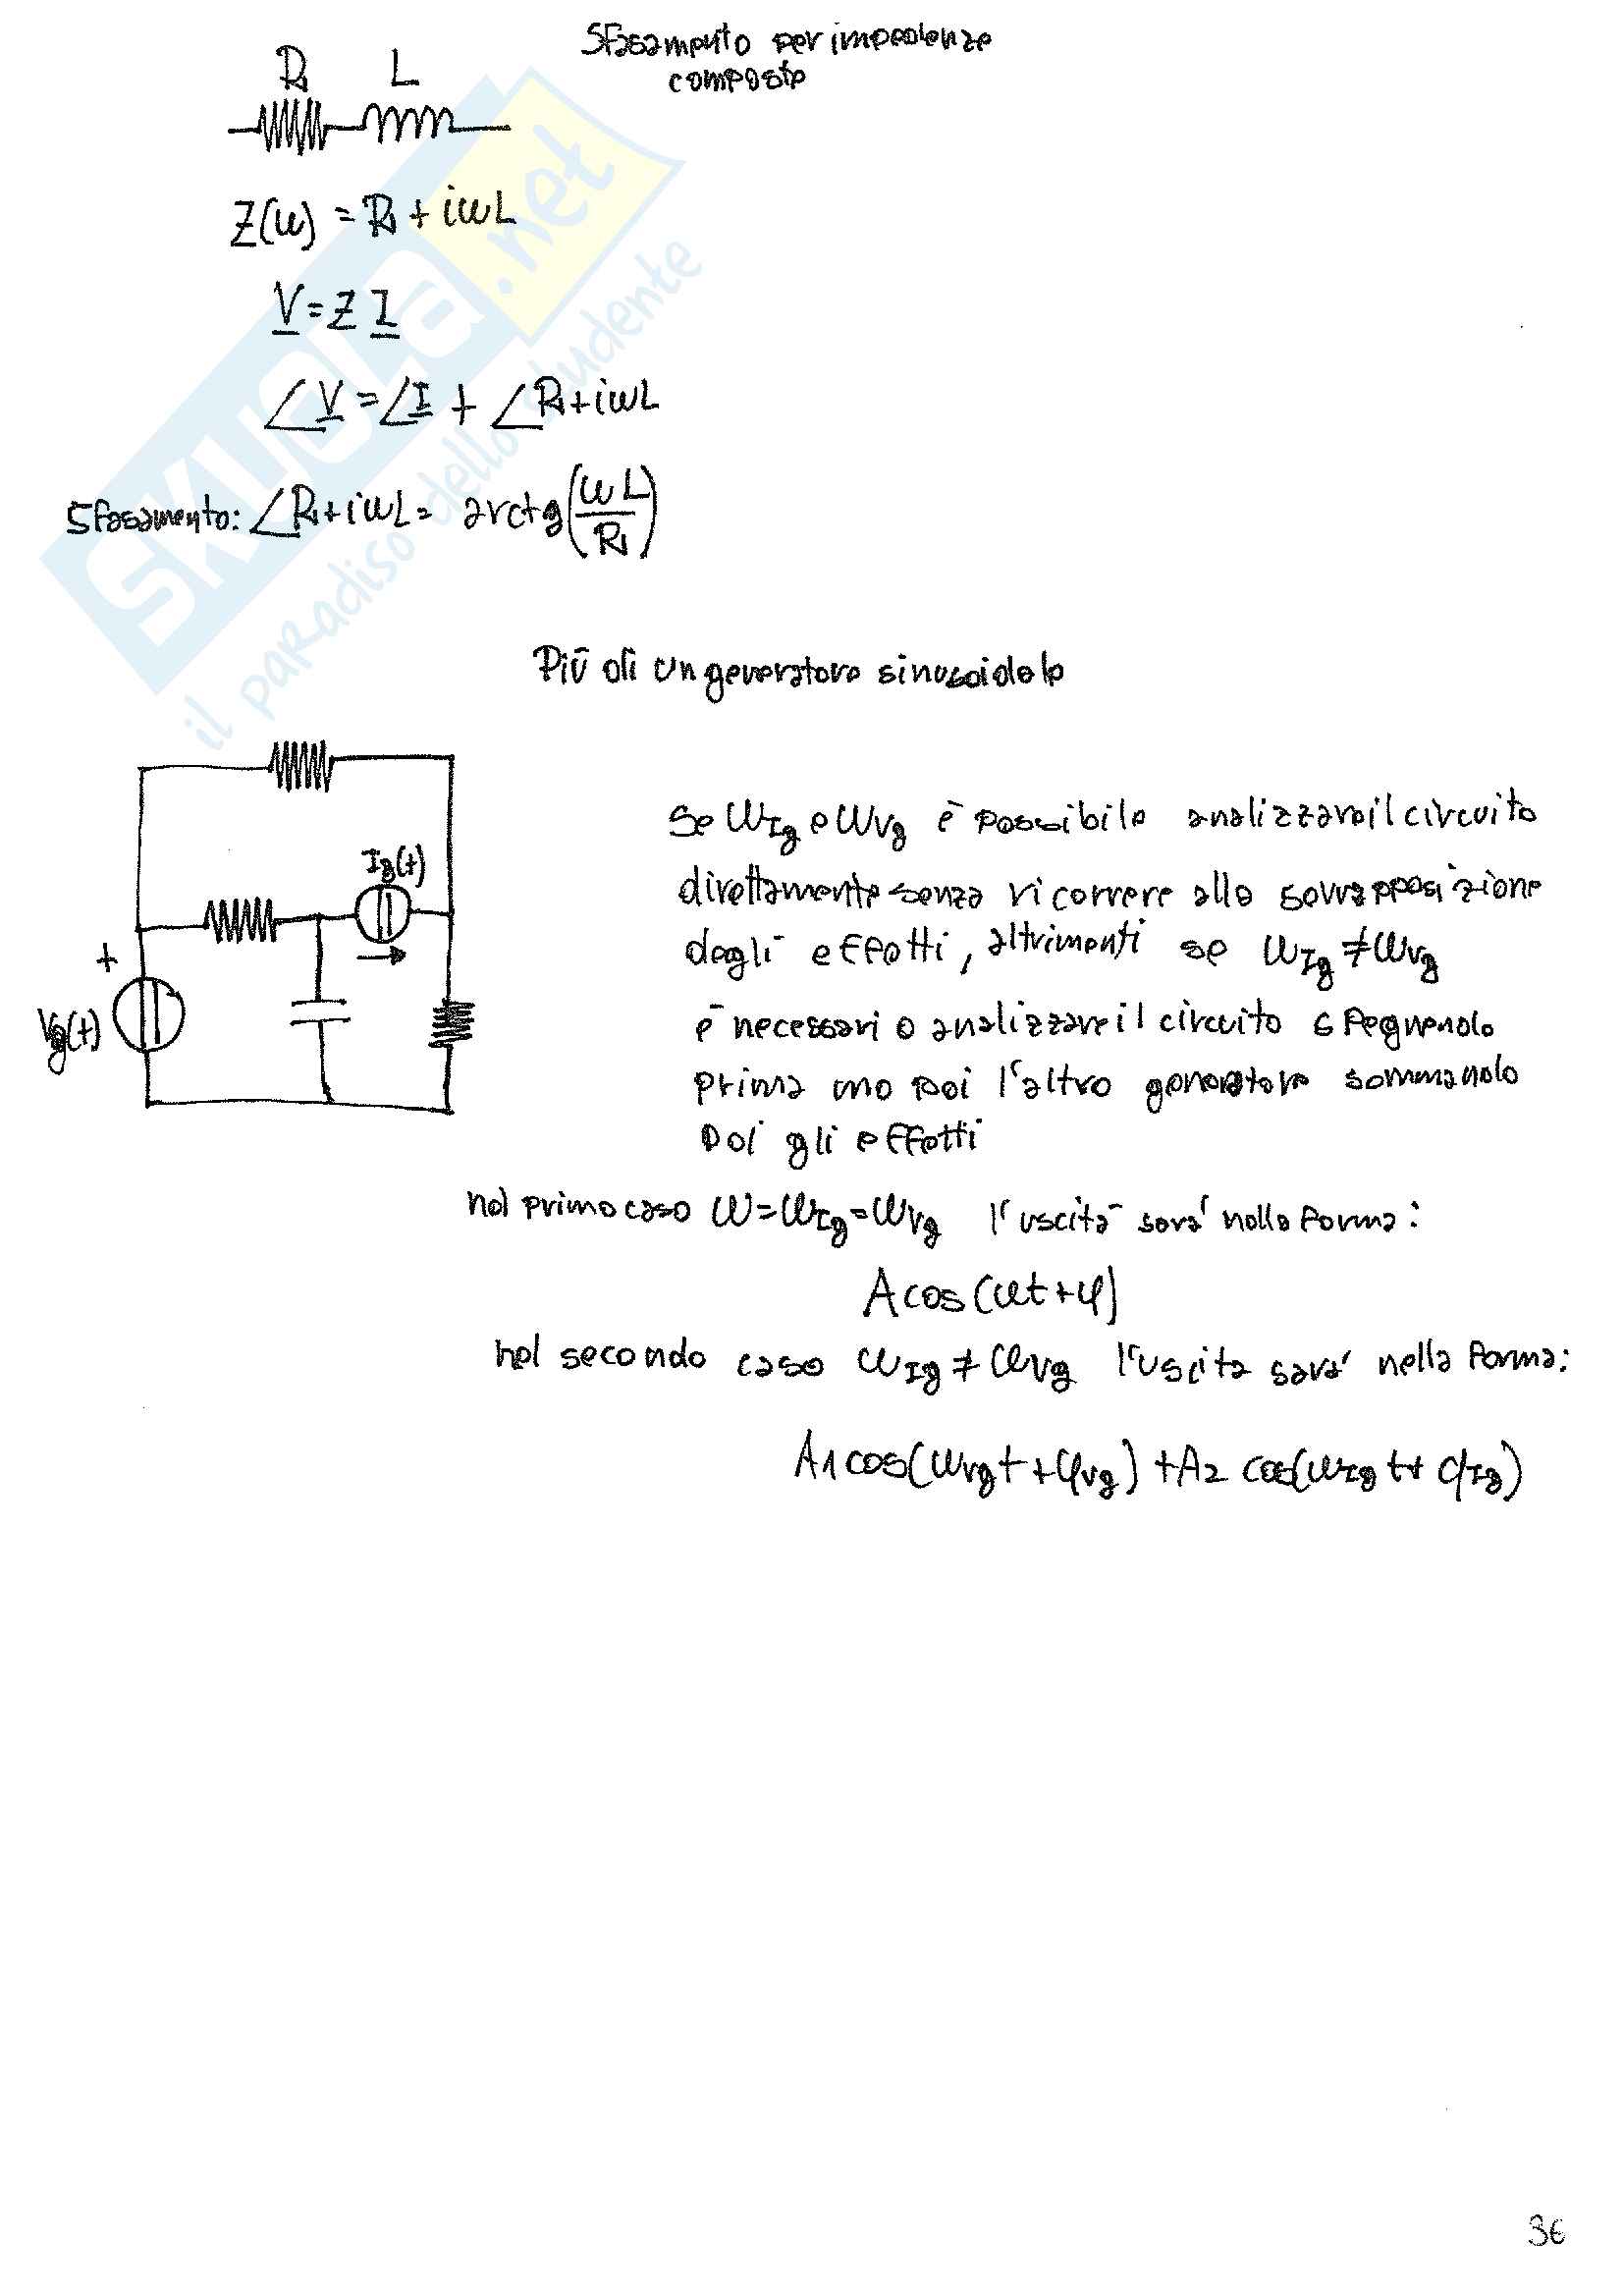 Sfasamento per impedenze
composte
R L
Z(ω) = R + iωL
V = Z I
∠V = ∠I + ∠R+iωL
Sfasamento: ∠R+iωL = arctg(ωL/R)
SKUOLA.net
il paradiso dello studente
Più di un generatore sinusoidale
Ig(t)
+
Vg(t)
Se ωIg e ωVg è possibile analizzare il circuito
direttamente senza ricorrere alla sovrapposizione
degli effetti, altrimenti se ωIg ≠ ωVg
è necessario analizzare il circuito spegnendo
prima uno poi l'altro generatore sommando
poi gli effetti
nel primo caso ω = ωIg = ωVg l'uscità sarà nella forma:
A cos(ωt+φ)
nel secondo caso ωIg ≠ ωVg l'uscita sarà nella forma:
A1 cos(ωVg t + φVg) + A2 cos(ωIg t + φIg)
36